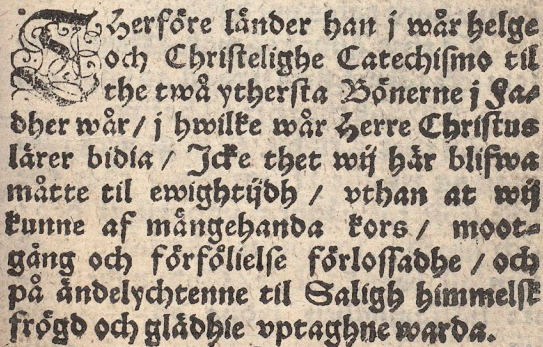 THerföre länder han j wår helge
och Christelighe Catechismo til
the twå ythersta Bönerne j Fa-
dher wår / j hwilke wår Herre Christus
lärer bidia / Icke thet wij här blifwa
måtte til ewightijdh / vthan at wij
kunne af mångehanda kors / moot-
gång och förfölielse förlossadhe / och
på ändelychtenne til Saligh himmelsk
frögd och glädhie vptaghne warda.